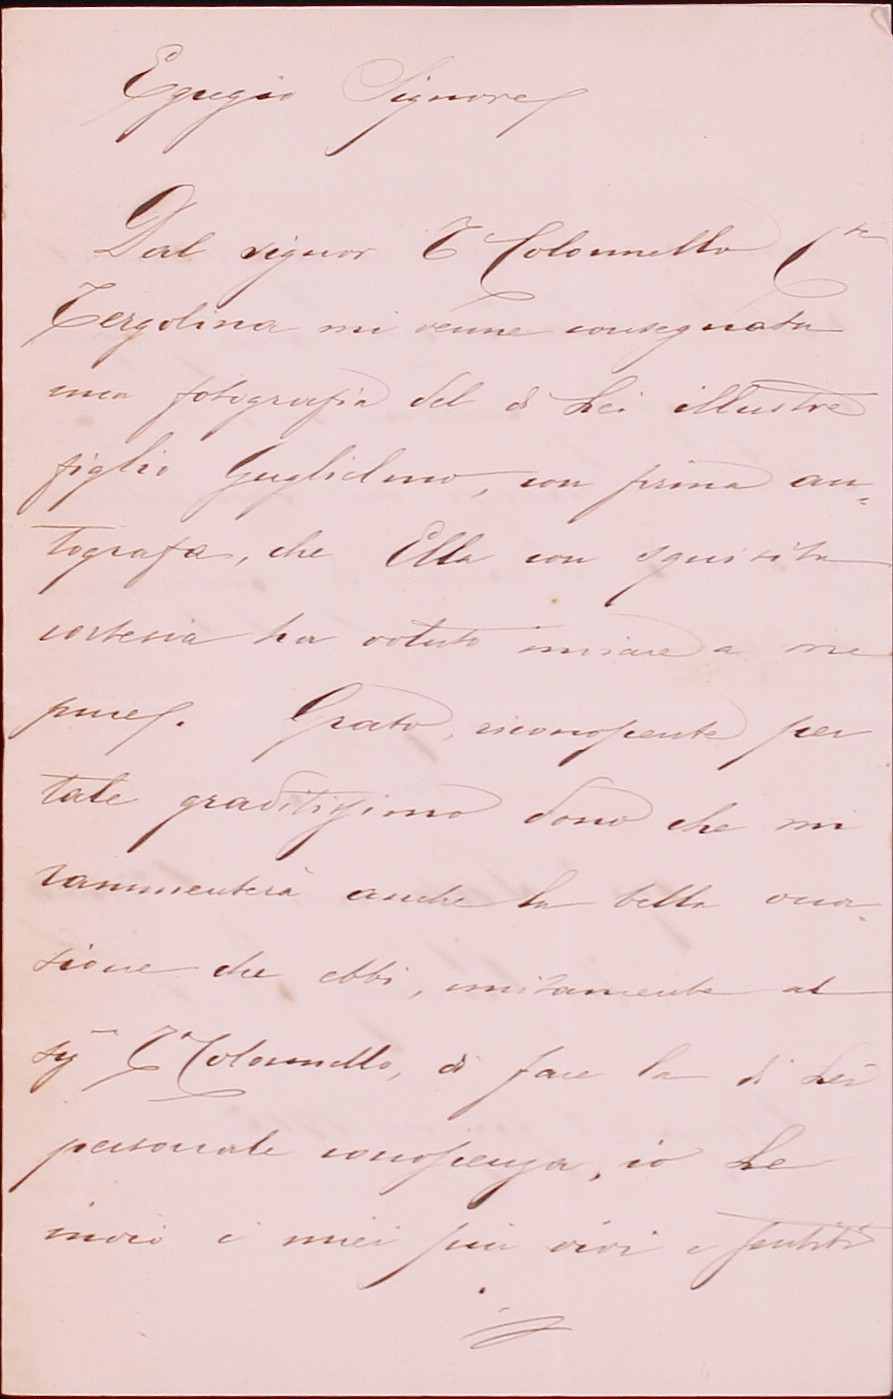 Egregio Signore
Dal signor T. Colonnello Cte
Tergolina mi venne consegnata
una fotografia del di Lei illustre
figlio Guglielmo, con firma au=
tografa, che Ella con squisita
cortesia ha voluto inviare a me
pure. Grato, riconoscente per
tale graditissimo dono che mi
rammenterà anche la bella occa=
sione che ebbi, unitamente al
sigr T. Colonnello, di fare la di Lei
personale conoscenza, io Le
invio i miei più vivi e sentiti